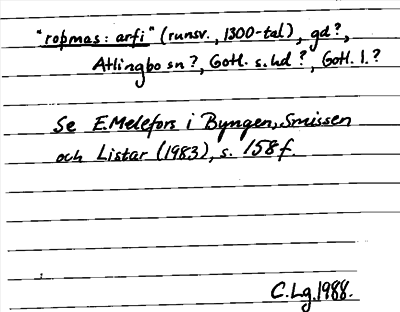 "roþmas: arfi" (runsv., 1300-tal), gd?,
Atlingbo sn?, Gotl. s. hd?, Gotl. l.?
Se E.Melefors i Byngen, Smissen
och Listar (1983), s. 158f.
C.Lg.1988.